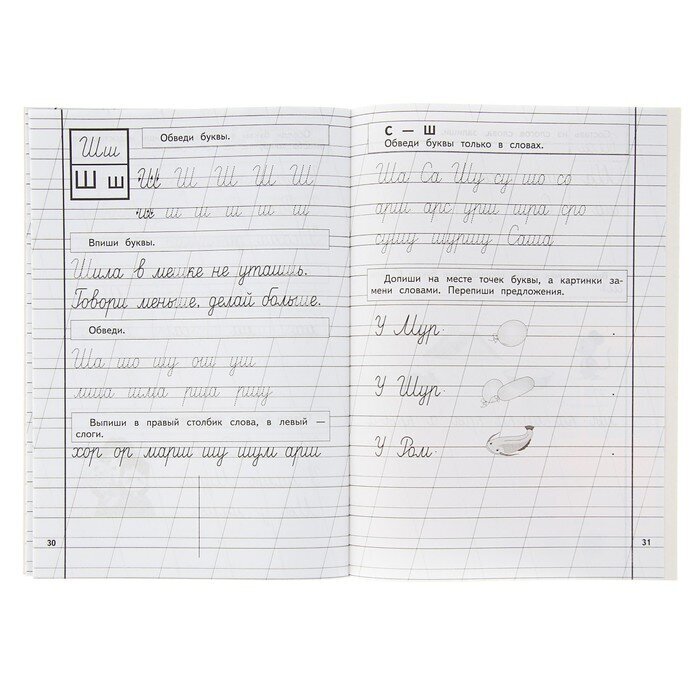 Шш
Ш ш
Обведи буквы.
Ш Ш Ш Ш Ш
ш ш ш ш ш ш
Впиши буквы.
Шила в мешке не утаишь.
Говори меньше, делай больше.
Обведи.
Ша шо шу ош уш
Выпиши в правый столбик слова, в левый —
слоги.
хор ор марш шу шум арш
30
С — Ш
Обведи буквы только в словах.
Ша Са Шу су шо со
арш арс урш шра сро
сушу шуршу Саша
Допиши на месте точек буквы, а картинки за-
мени словами. Перепиши предложения.
У Мур.
У Шур.
У Ром.
31